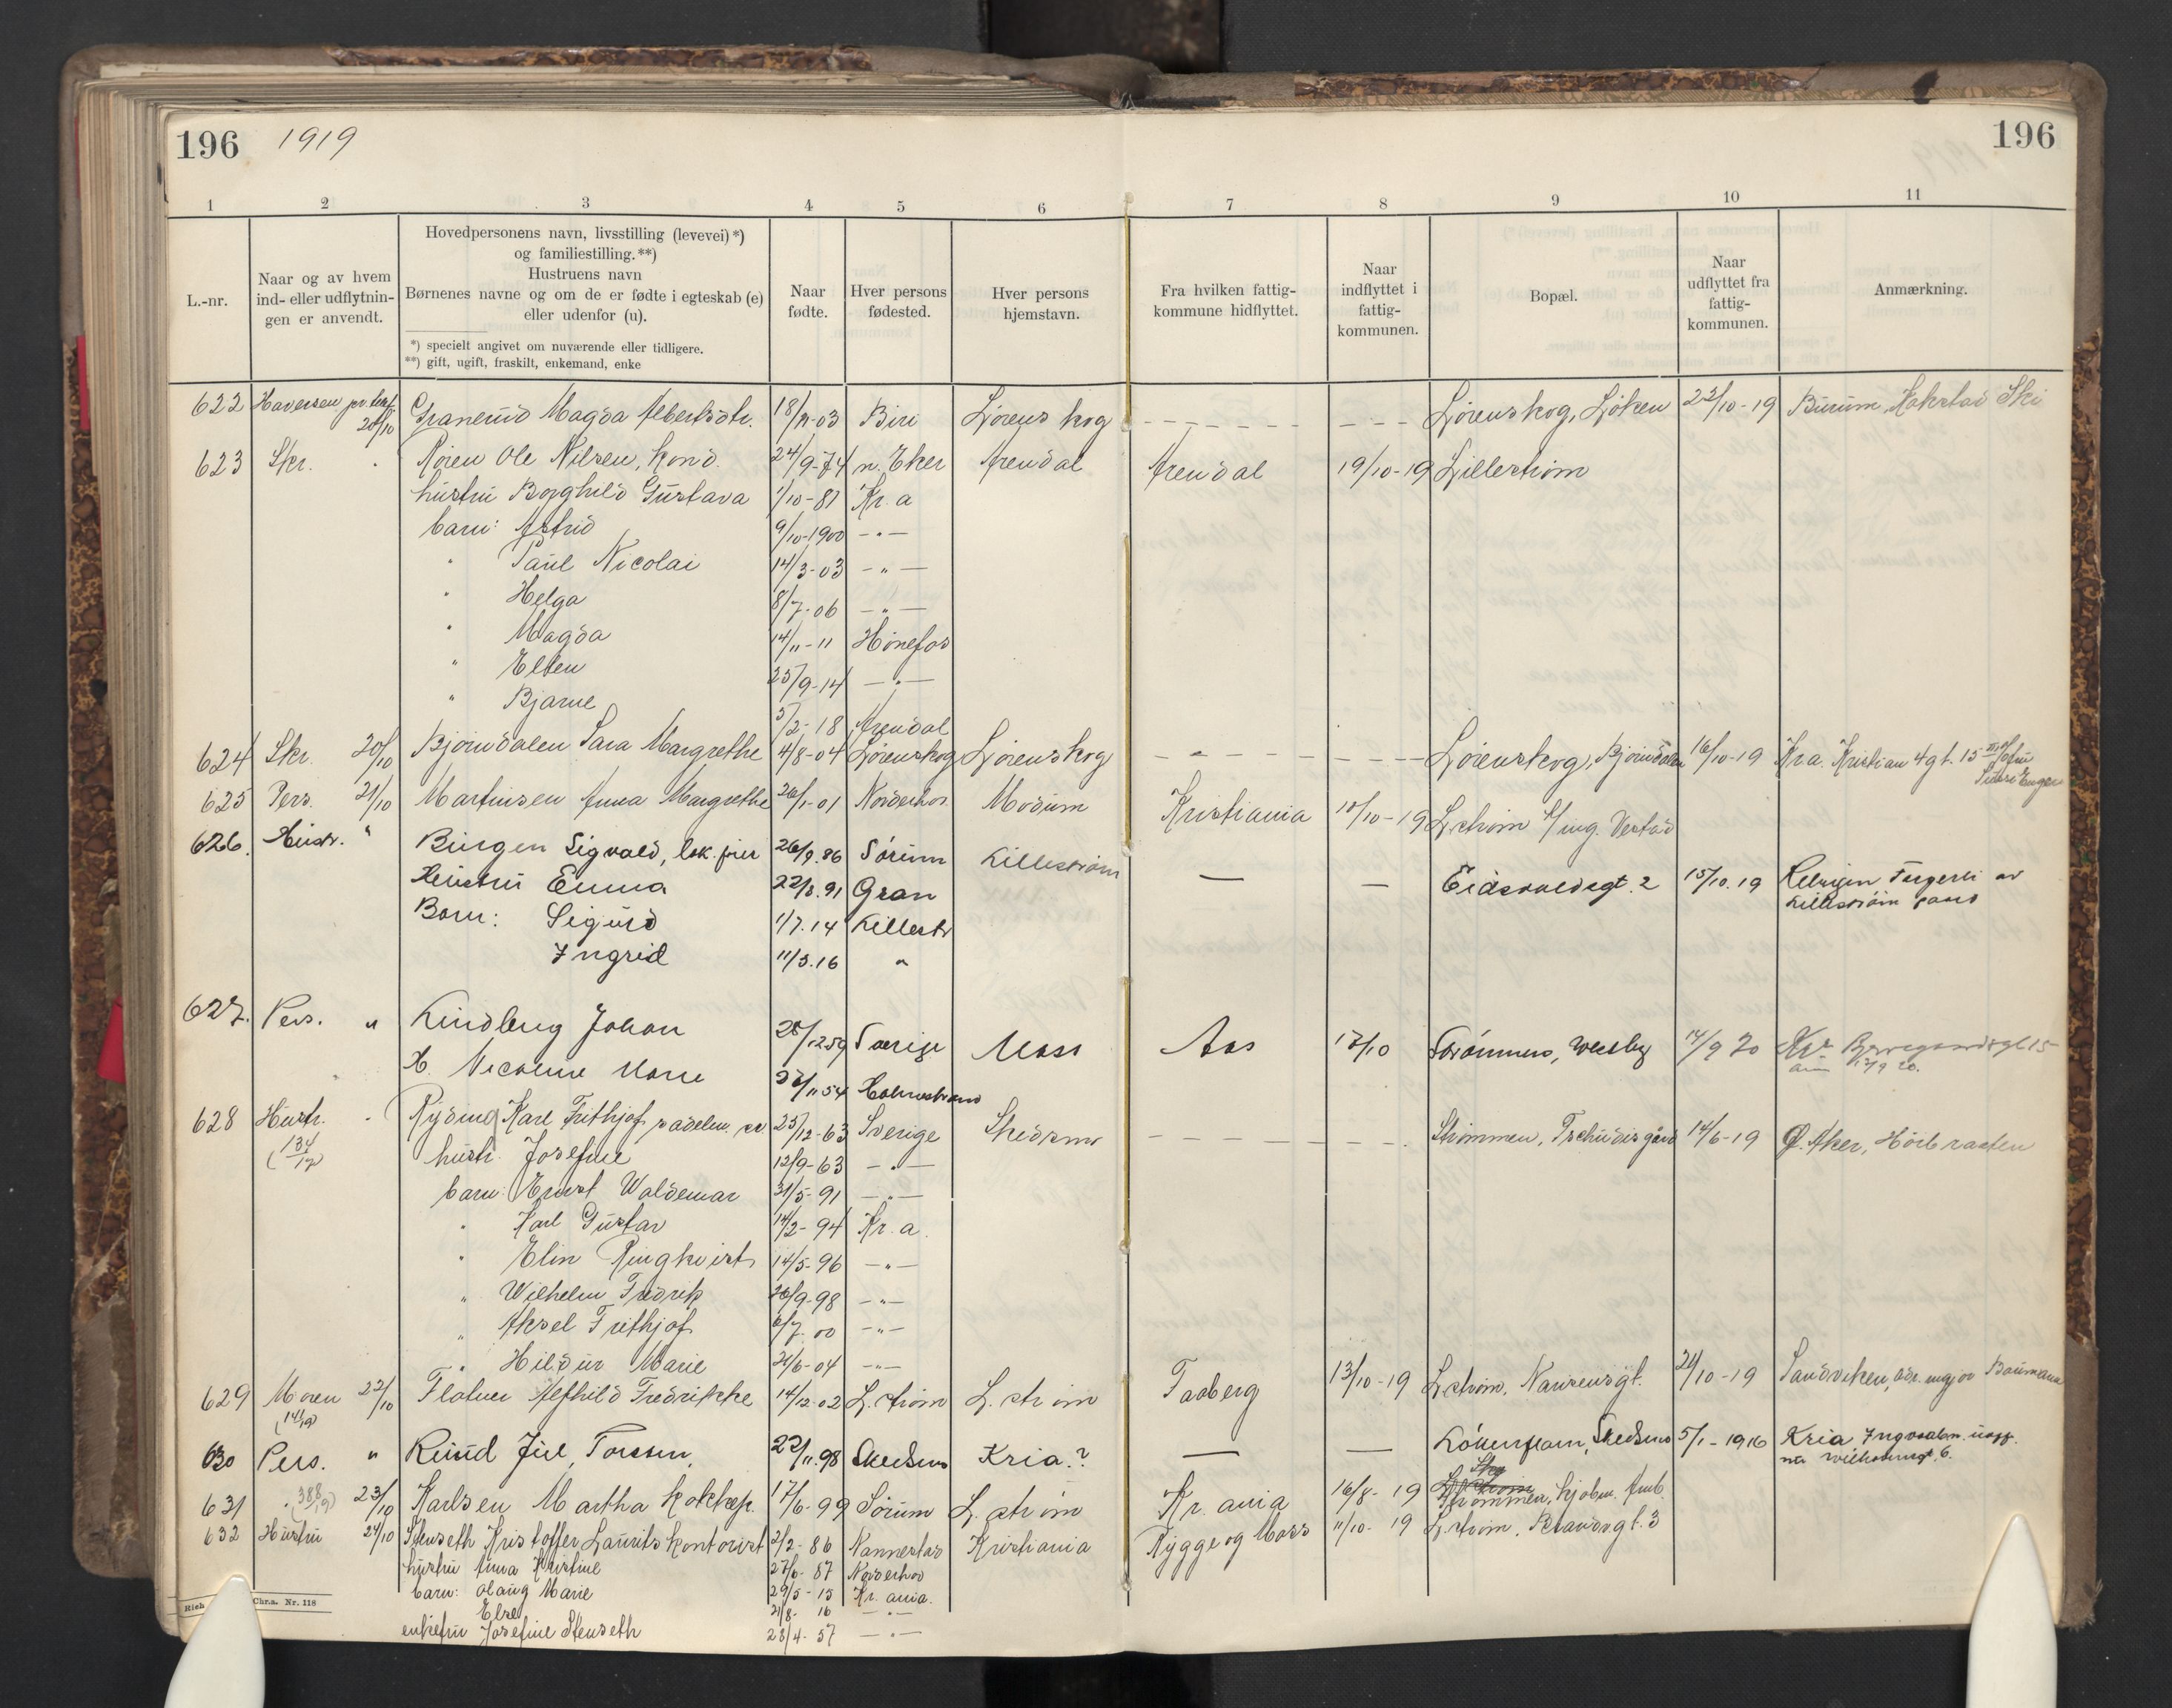 196 1919 196
1 2 3 4 5 6 7 8 9 10 11
L.-nr.
Naar og av hvem
ind- eller udflytnin-
gen er anvendt.
Hovedpersonens navn, livsstilling (levevei) *)
og familiestilling. **)
Hustruens navn
Børnenes navne og om de er fødte i egteskab (e)
eller udenfor (u).
*) specielt angivet om nuværende eller tidligere.
**) gift, ugift, fraskilt, enkemand, enke
Naar
fødte.
Hver persons
fødested.
Hver persons
hjemstavn.
Fra hvilken fattig-
kommune hidflyttet.
Naar
indflyttet i
fattig-
kommunen.
Bopæl.
Naar
udflyttet fra
fattig-
kommunen.
Anmærkning.
622 Haversen pr. 20/10 Granerud Magda Albertsdtr. 18/11-03 Biri Lørenskog Lørenskog, Løken 22/10-19 Ski
623 Skr. Røren Ole Nilsen, kond. 24/9-74 n. Eker Arendal Arendal 19/10-19 Lillestrøm
hustru Borghild Gustava 1/10-81 Kr.a
barn: Astrid 9/10-1900 -"-
" Paul Nicolai 14/3-03 -"-
" Helga 8/7-06 -"-
" Magda 14/11-11 Hønefos
" Ellen 25/9-14 -"-
" Bjarne 5/2-18 Arendal
624 Skr. 20/10 Bjørndalen Sara Margrethe 4/8-04 Lørenskog Lørenskog Lørenskog, Bjørndalen 16/10-19 Kr.a. Kristian 4 gt. 15
625 Pers. 21/10 Martinsen Anna Margrethe 26/1-01 Norderhov Modum Kristiania 10/10-19 L.strøm v/ing. Vestad
626. Hustr. " Burgen Sigvald, lok. fører 26/9.86 Sørum Lillestrøm — — Eidsvoldsgt. 2 15/10.19
Hustru Emma 22/8.91 Gran Lillestrøm
Barn: Sigurd 1/7.14 Lillestr
Ingrid 11/3.16 "
627. Pers. " Lindberg Johan 28/12 59 Sverige Moss Aas 17/10 Strømmen, Westby 14/9 20 15
H. Nicoline Marie 27/11 54 Holmestrand 17/9 20.
628 Hustr. Ryding Karl Frithjof, sadelm. sv. 25/12-63 Sverige Skedsmo Strømmen, Tschudisgård 14/6-19 Ø. Aker, Höibraaten
(134/19) hustr. Josefine 12/9-63 -"-
barn: Ernst Waldemar 31/5-91 -"-
" Karl Gustav 14/2-94 Kr.a.
" Elin Ringkvist 14/5-96 -"-
" Wilhelm Fredrik 20/9-98 -"-
" Aksel Frithjof 6/7.00 -"-
" Hildur Marie 21/6-04 -"-
629 Moren 22/10 Flatner Alfhild Fredrikke 14/12-02 L.strøm L.strøm Faaberg 13/10-19 L.strøm, Nansensgt. 21/10-19 Sandviken, adr. major Baumann
(141/19)
630 Pers. " Ruud Juel, Torsten, 22/11.98 Skedsmo Kria? — — Løkenflaen, Skedsmo 5/1-1916 Kria
6.
631 (388/19) 23/10 Karlsen Martha kokkep. 17/6-99 Sørum L.strøm Kr.ania 16/8-19 Strømmen,
632 Hustru 24/10 Stenseth Kristoffer Laurits kontorist 2/2-86 Nannestad Kristiania Rygge og Moss 11/10-19 L.strøm, Brandvgt. 3
hustru Anna Kristine 27/6-87 Norderhov
barn: Olaug Marie 29/5-15 Kr.ania.
Else 21/8-16 -"-
enkefru Josefine Stenseth 28/4-57 -"-
Chr.a. Nr. 118